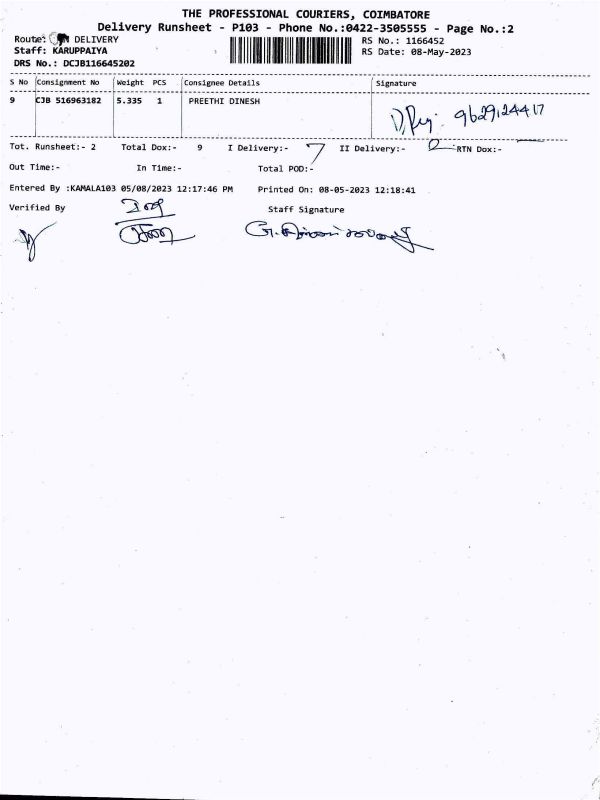 THE PROFESSIONAL COURIERS, COIMBATORE
Delivery Runsheet - P103 - Phone No.:0422-3505555 - Page No.:2
Route: DELIVERY
RS No.: 1166452
Staff: KARUPPAIYA
RS Date: 08-May-2023
DRS No.: DCJB116645202
S No Consignment No Weight PCS Consignee Details Signature
9 CJB 516963182 5.335 1 PREETHI DINESH
9629124417
Tot. Runsheet:- 2 Total Dox:- 9 I Delivery:- 7 II Delivery:- 2 RTN Dox:-
Out Time:- In Time:- Total POD:-
Entered By :KAMALA103 05/08/2023 12:17:46 PM Printed On: 08-05-2023 12:18:41
Verified By Staff Signature